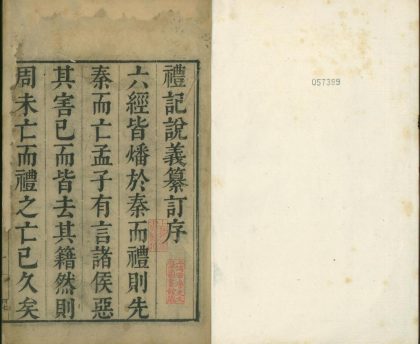 禮記說義纂訂序
六經皆燔於秦而禮則先
秦而亡孟子有言諸侯惡
其害已而皆去其籍然則
周未亡而禮之亡已久矣
057399